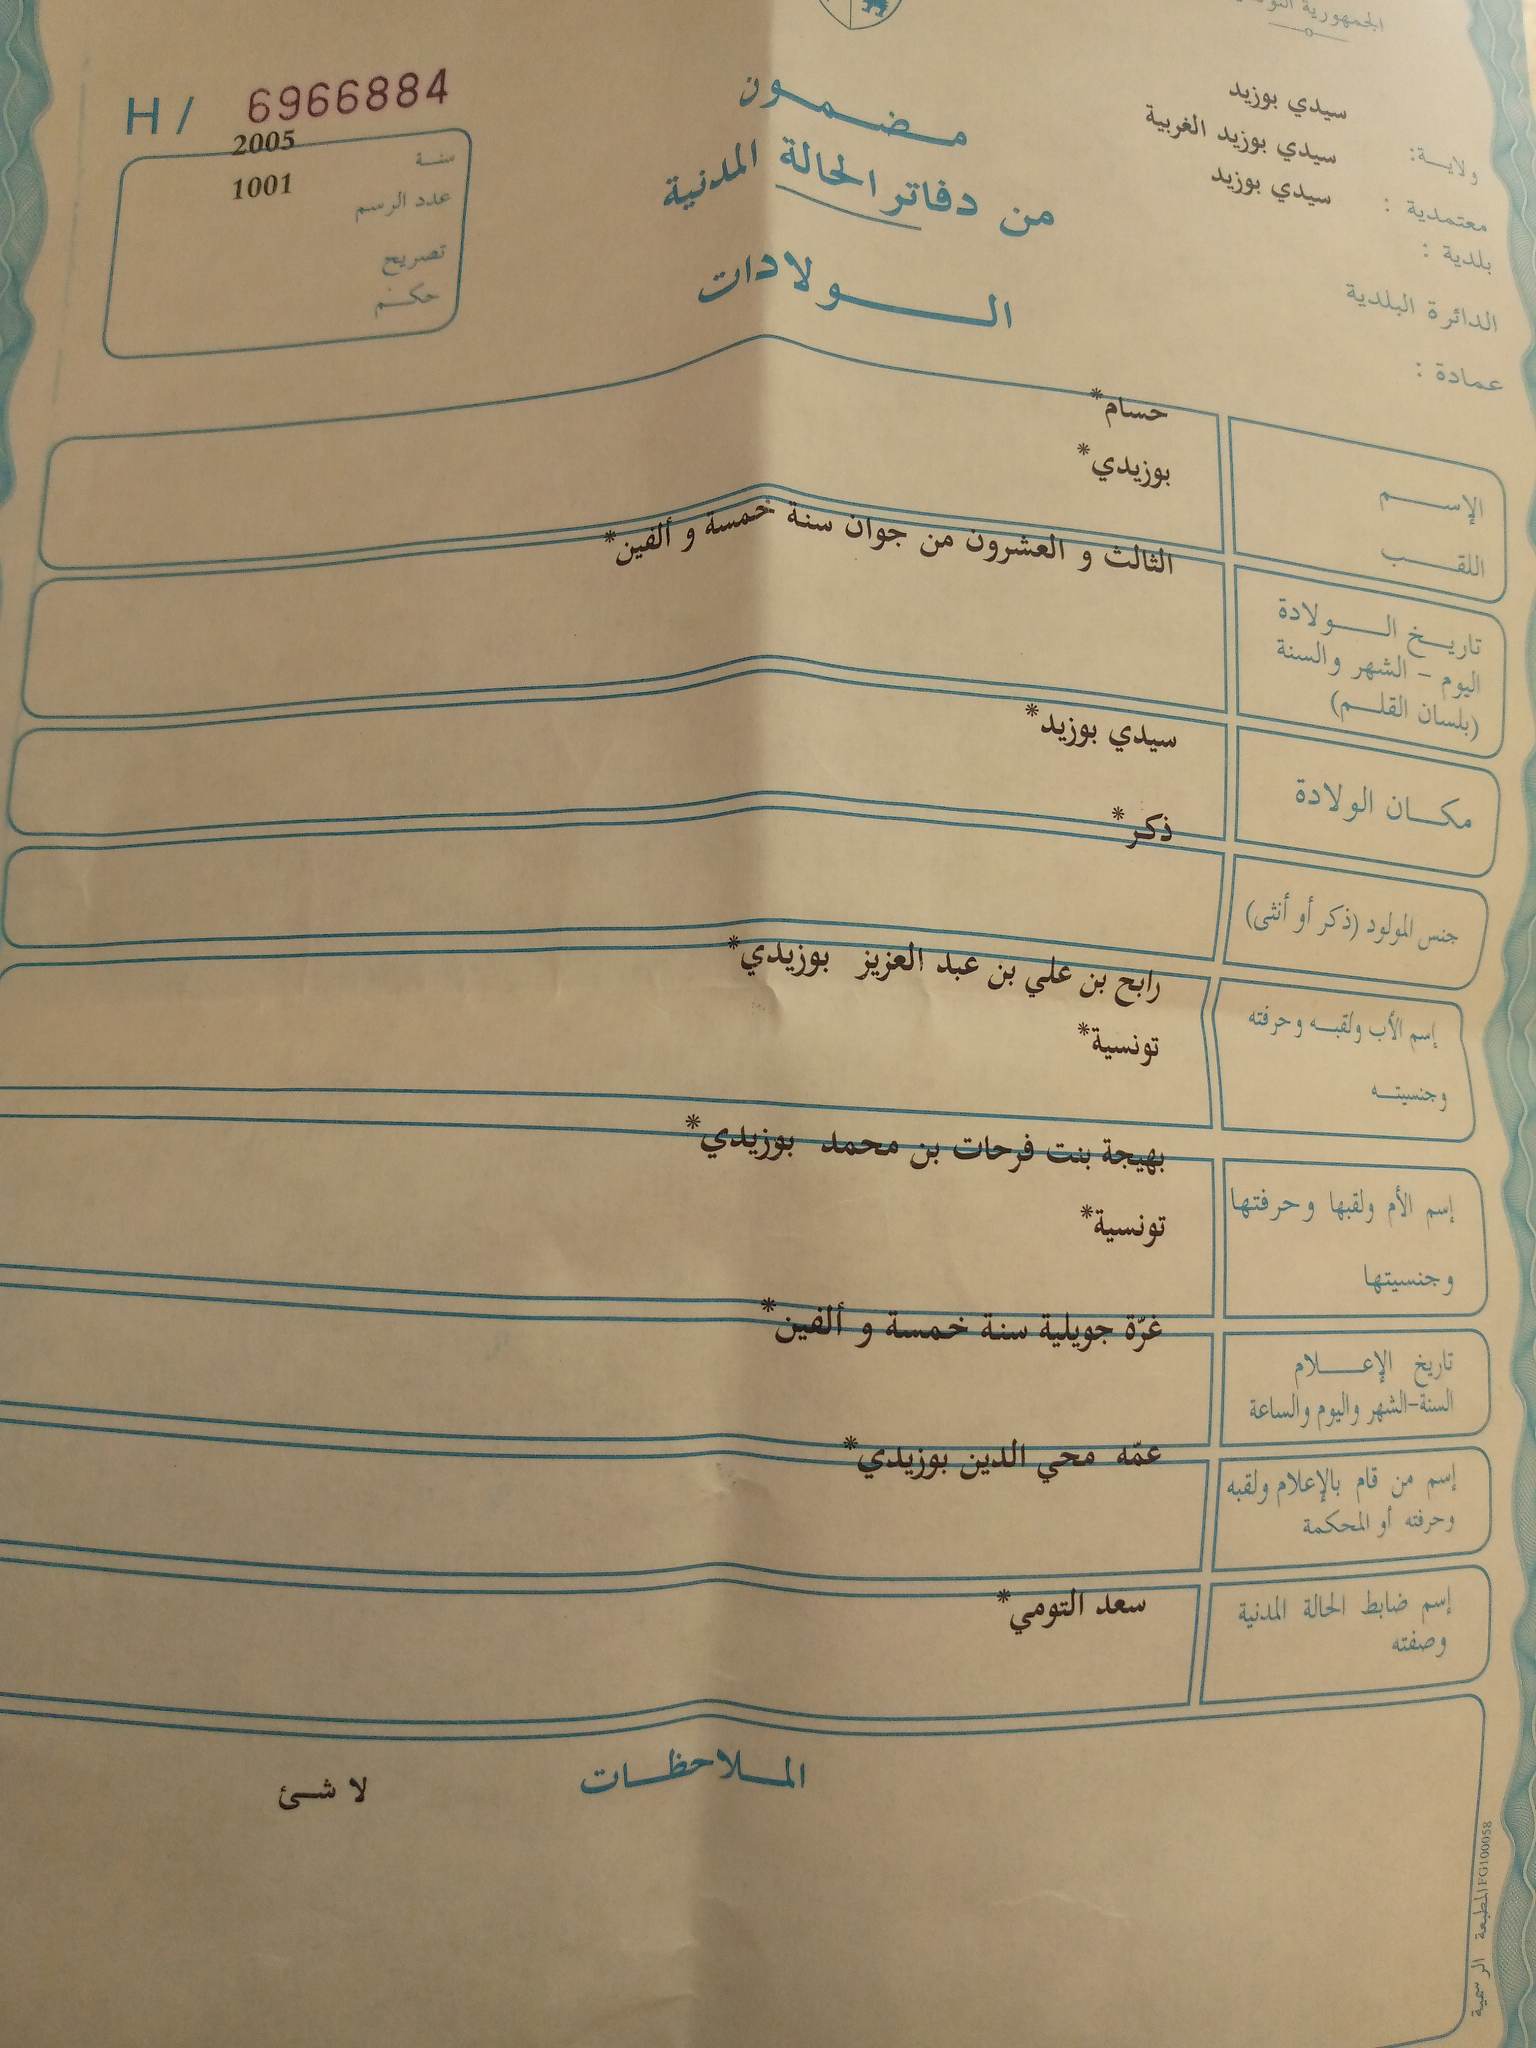 الجمهورية
سيدي بوزيد
ولايـــة:
سيدي بوزيد الغربية
معتمدية :
سيدي بوزيد
بلدية :
الدائرة البلدية
عمادة :
مضمون
من دفاتر الحالة المدنية
الولادات
H/ 6966884
سنة 2005
عدد الرسم 1001
تصريح
حكم
الإسم
حسام*
اللقب
بوزيدي*
تاريخ الولادة
اليوم - الشهر والسنة
(بلسان القلم)
الثالث و العشرون من جوان سنة خمسة و ألفين*
مكان الولادة
سيدي بوزيد*
جنس المولود (ذكر أو أنثى)
ذكر*
إسم الأب ولقبه وحرفته
وجنسيته
رابح بن علي بن عبد العزيز بوزيدي*
تونسية*
إسم الأم ولقبها وحرفتها
وجنسيتها
بهيجة بنت فرحات بن محمد بوزيدي*
تونسية*
تاريخ الإعلام
السنة-الشهر واليوم والساعة
غرّة جويلية سنة خمسة و ألفين*
إسم من قام بالإعلام ولقبه
وحرفته أو المحكمة
عمّه محي الدين بوزيدي*
إسم ضابط الحالة المدنية
وصفته
سعد التومي*
الملاحظات
لا شئ
المطبعة الرسمية FG100058